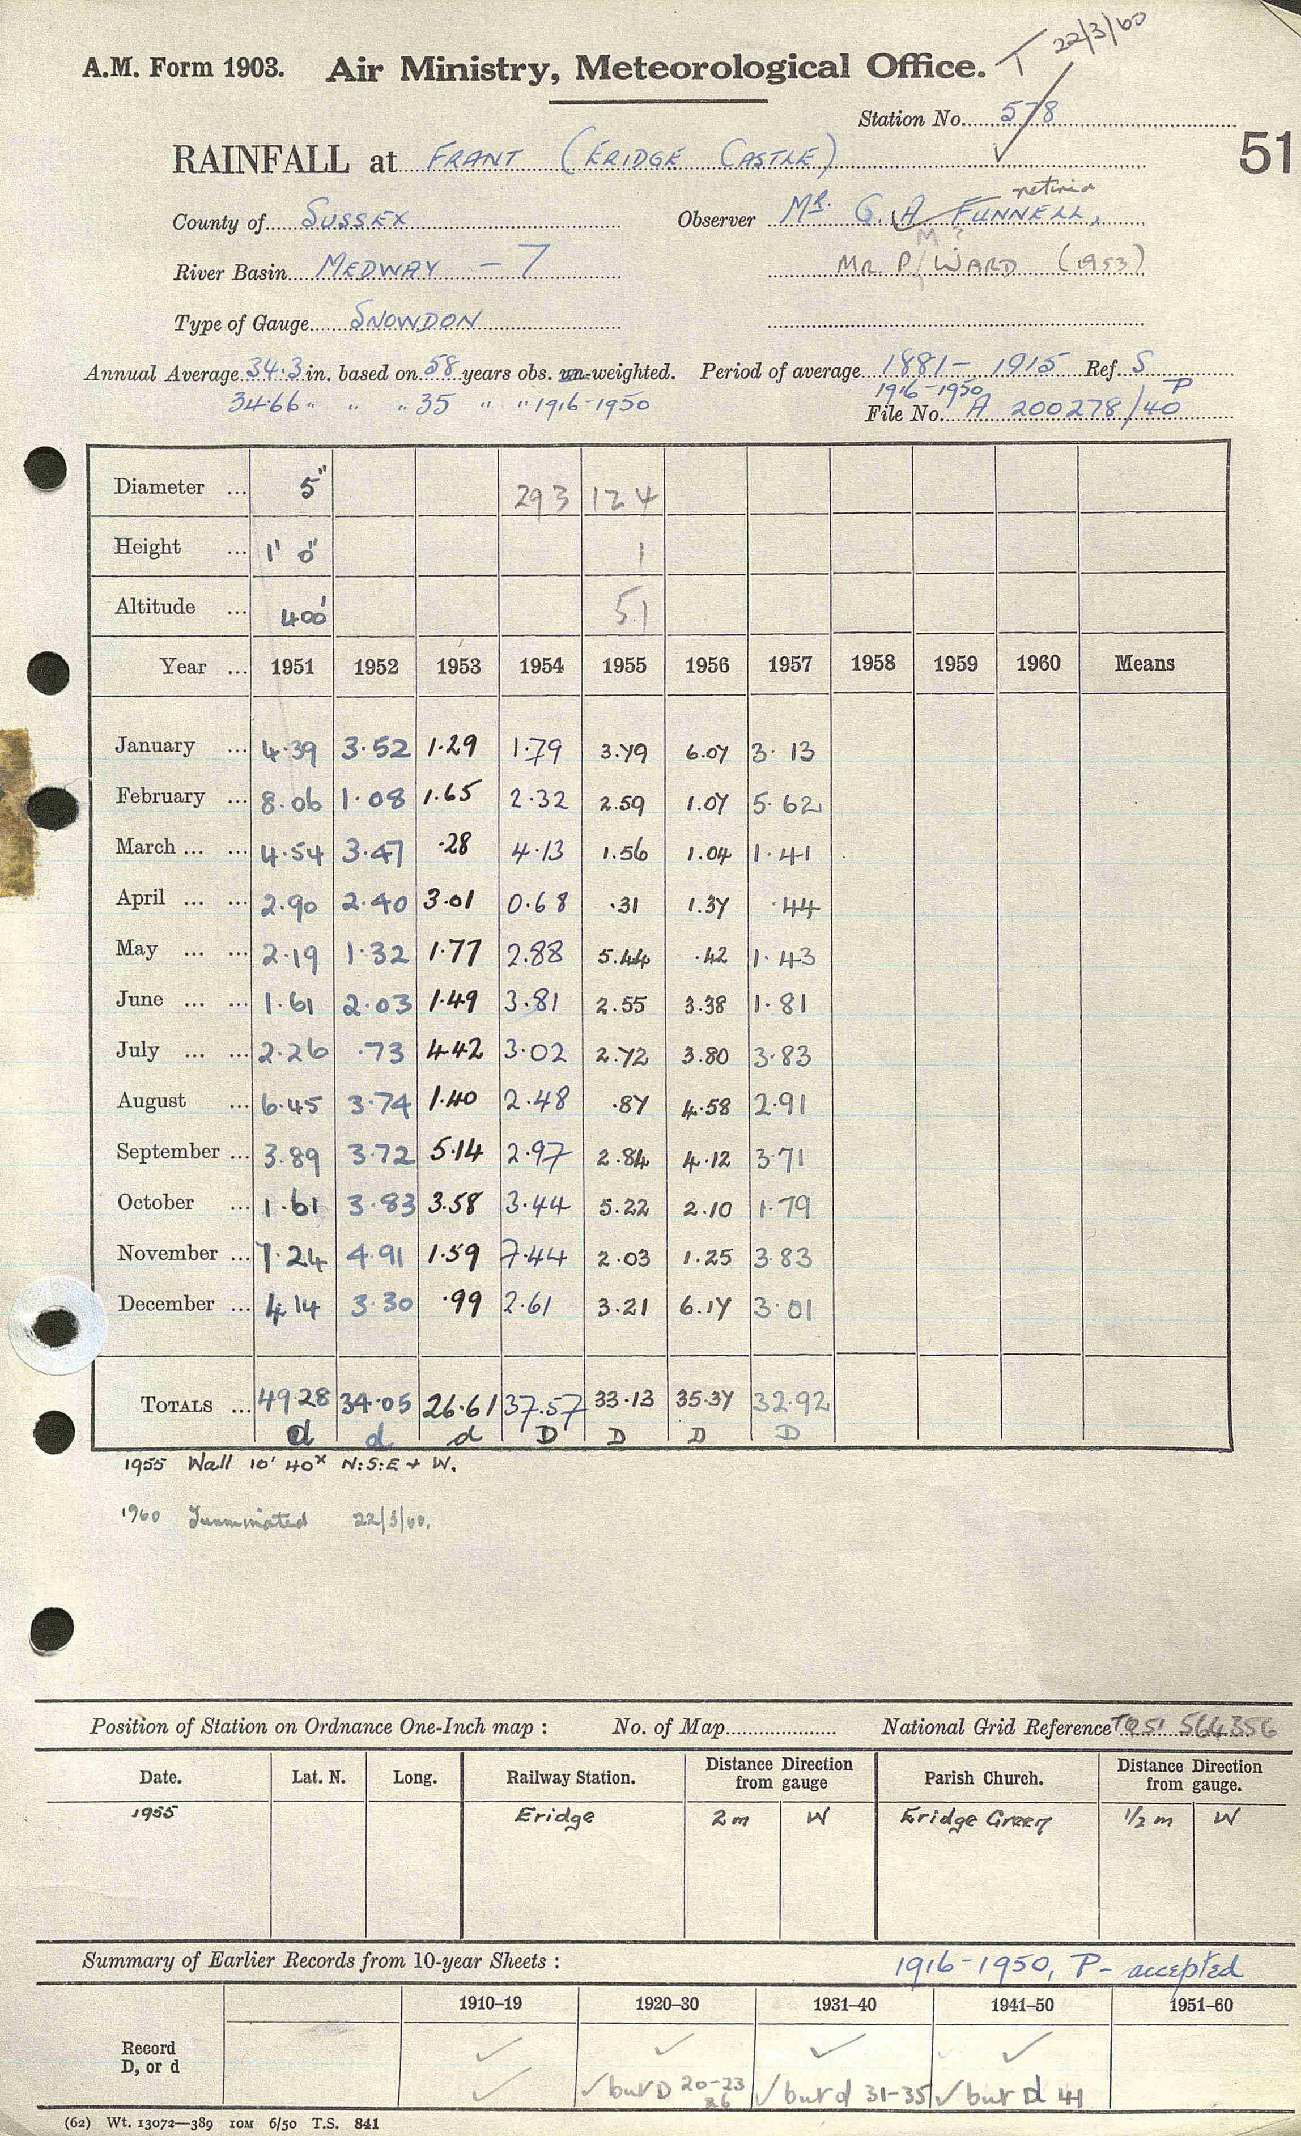 T 22/3/60
A.M. Form 1903. Air Ministry, Meteorological Office.
Station No. 578
51
RAINFALL at FRANT (ERIDGE CASTLE)
retired
County of SUSSEX Observer MR. G. A FUNNELL,
M ?
River Basin MEDWAY - 7 MR P WARD (1953)
Type of Gauge SNOWDON
Annual Average 34.3 in. based on 58 years obs. un-weighted. Period of average 1881 - 1915 Ref. S
1916-1950 P
34.66 " " " 35 " " " 1916-1950 File No. A 200278/40
Diameter ... 5" 293 124
Height ... 1' 0" 1
Altitude ... 400' 51
Year ... 1951 1952 1953 1954 1955 1956 1957 1958 1959 1960 Means
January ... 4.39 3.52 1.29 1.79 3.79 6.07 3.13
February ... 8.06 1.08 1.65 2.32 2.59 1.07 5.62
March ... ... 4.54 3.47 .28 4.13 1.56 1.04 1.41
April ... ... 2.90 2.40 3.01 0.68 .31 1.37 .44
May ... ... 2.19 1.32 1.77 2.88 5.44 .42 1.43
June ... ... 1.61 2.03 1.49 3.81 2.55 3.38 1.81
July ... ... 2.26 .73 4.42 3.02 2.72 3.80 3.83
August ... 6.45 3.74 1.40 2.48 .87 4.58 2.91
September ... 3.89 3.72 5.14 2.97 2.84 4.12 3.71
October ... 1.61 3.83 3.58 3.44 5.22 2.10 1.79
November ... 7.24 4.91 1.59 7.44 2.03 1.25 3.83
December ... 4.14 3.30 .99 2.61 3.21 6.17 3.01
TOTALS ... 49.28 34.05 26.61 37.57 33.13 35.37 32.92
d d d D D D D
1955 Wall 10' 40x N:S:E + W.
1960 Terminated 22/3/60.
Position of Station on Ordnance One-Inch map : No. of Map National Grid Reference TQ51 564356
Date. Lat. N. Long. Railway Station. Distance Direction from gauge Parish Church. Distance Direction from gauge.
1955 Eridge 2m W Eridge Green 1/2 m W
Summary of Earlier Records from 10-year Sheets : 1916-1950, P - accepted
1910–19 1920–30 1931–40 1941–50 1951–60
Record ✓ ✓ ✓ ✓
D, or d ✓ ✓ but D 20-23 26 ✓ but d 31-35 ✓ but D 41
(62) Wt. 13072—389 10M 6/50 T.S. 841